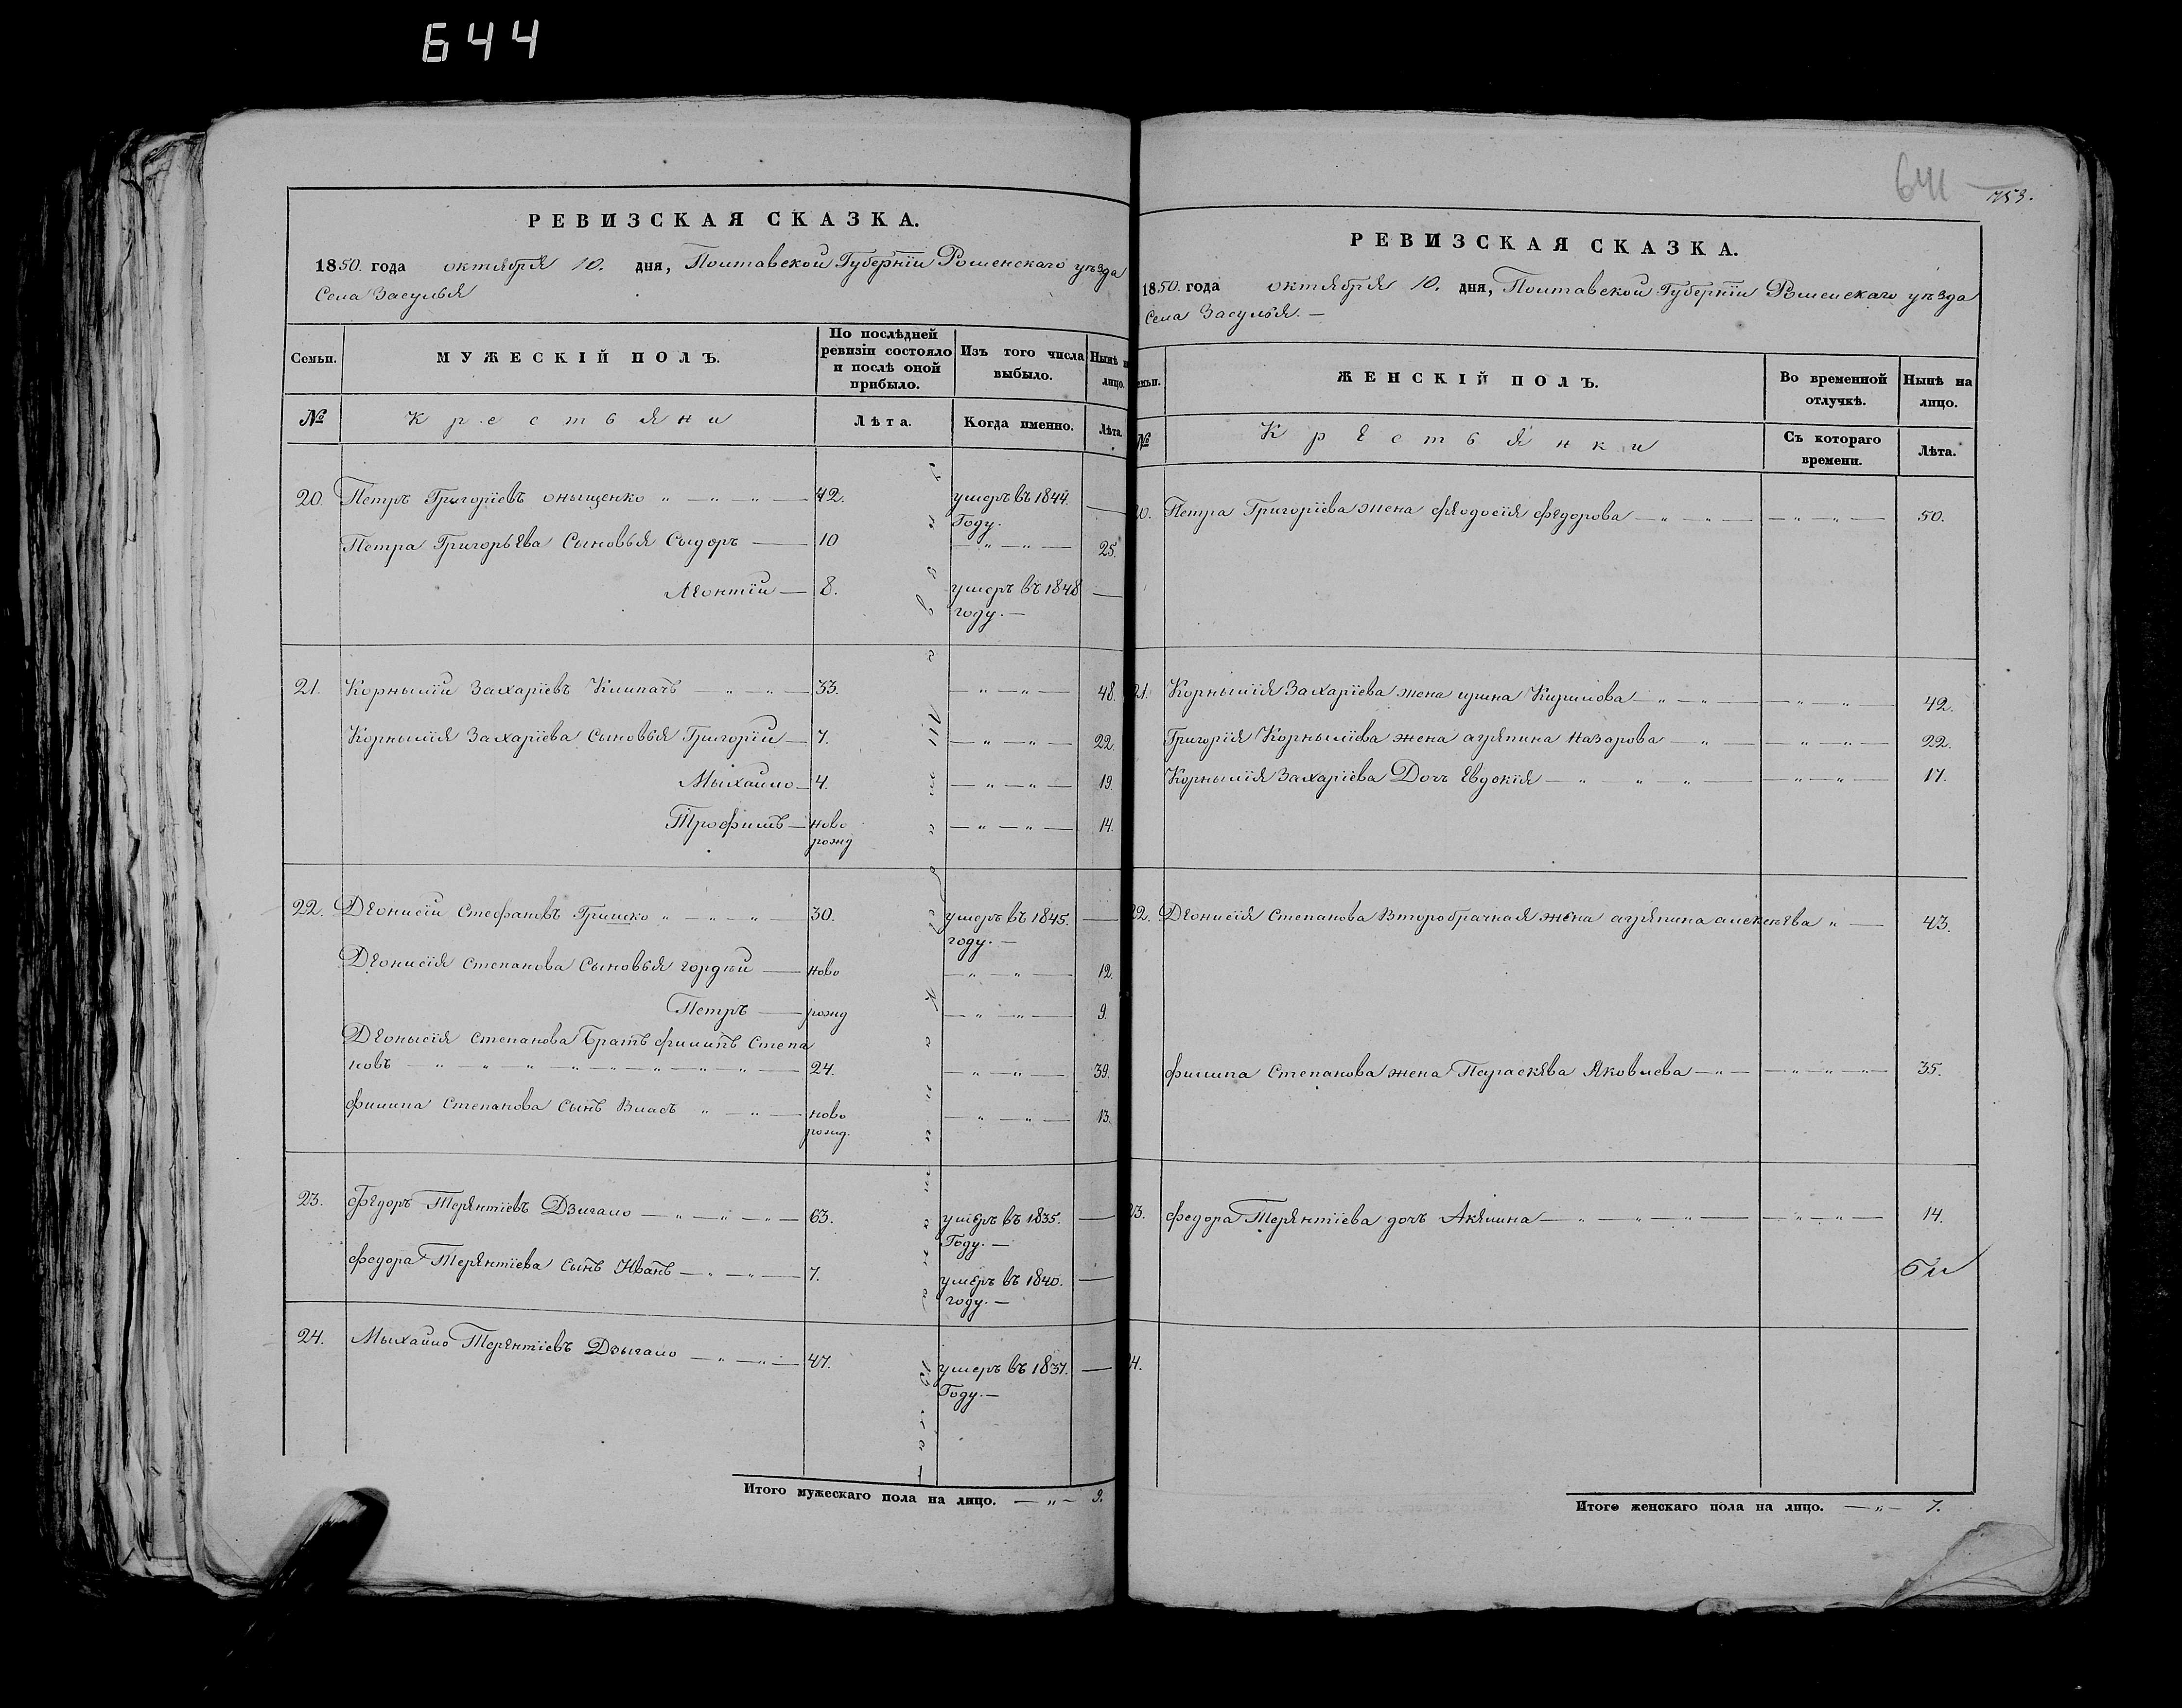 644
РЕВИЗСКАЯ СКАЗКА.
1850. года октября 10. дня, Полтавской Губернїи Роменскаго уѣзда
Села Засулья
Семьи.
МУЖЕСКІЙ ПОЛЪ.
По послѣдней
ревизіи состояло
и послѣ оной
прибыло.
Изъ того числа
выбыло.
Нынѣ
лицо.
№
Крестьяни
Лѣта.
Когда именно.
Лѣта.
20. Петръ Григорїевъ онищенко 42. умеръ въ 1844.
Году.
Петра Григорьева Сыновья Сыдоръ 10 25.
Леонтїй 8. умеръ въ 1848
году.
21. Корнылїй Захарїевъ Клипачъ 33. 48.
Корнылїя Захарїева сыновья Григорїй 7. 22.
Мыхайло 4. 19.
Трофимъ ново 14.
рожд
22. Деонисїй Стефановъ Гришко 30. умеръ въ 1845.
году.
Деонисїя степанова Сыновья гордѣй ново 12.
Петръ рожд 9.
Деонысїя степанова Братъ филипъ Степа
новъ 24. 39.
филипа Степанова Сынъ Власъ ново 13.
рожд.
23. Федоръ Терентїевъ Дзигало 63. умеръ въ 1835.
Году.
федора Терентїева сынъ Иванъ 7. умеръ въ 1840.
году.
24. Мыхайло Терентїевъ Дзыгало 47. умеръ въ 1837.
Году.
Итого мужескаго пола на лицо. 9.
641
753.
РЕВИЗСКАЯ СКАЗКА.
1850. года октября 10. дня, Полтавской Губернїи Роменскаго уѣзда
Села Засулья.
емьи.
ЖЕНСКІЙ ПОЛЪ.
Во временной
отлучкѣ.
Нынѣ на
лицо.
№
Крестьянки
Съ котораго
времени.
Лѣта.
20. Петра Григорїева жена феодосїя федорова 50.
21. Корнылїя Захарїева жена ирина Кирилова 42.
Григорїя Корнылїева жена агрепина Назарова 22.
Корнылїя Захарїева Дочь Евдокїя 17.
22. Деонисїя степанова Второбрачная жена агрепина алексеева 43.
филипа Степанова жена Параскева Яковлева 35.
23. федора Терентїева дочь Акилина 14.
24.
Итого женскаго пола на лицо. 7.